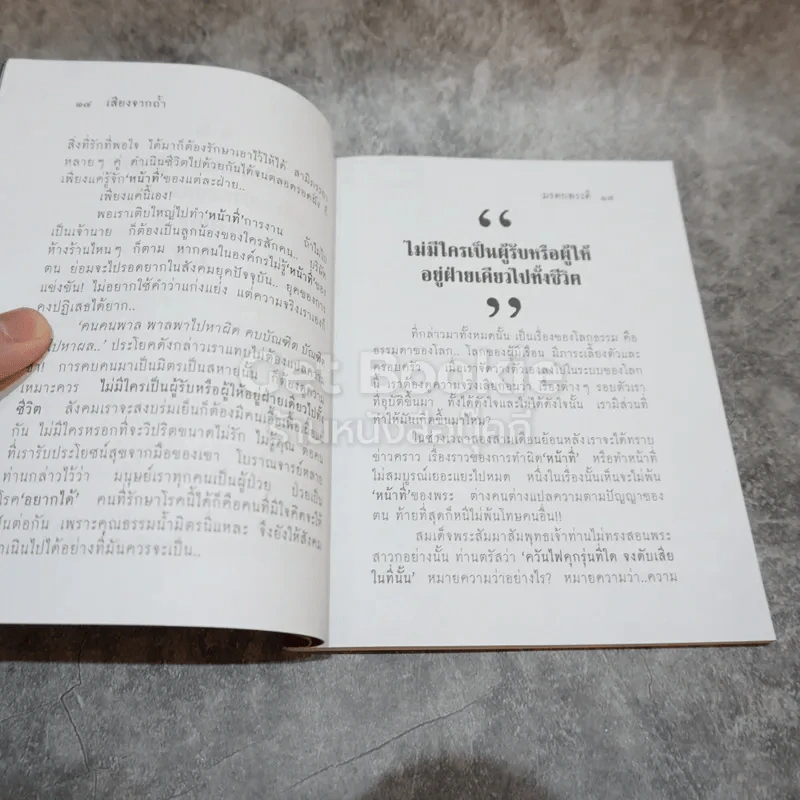 ๑๘ เสียงจากถ้ำ
สิ่งที่รักที่พอใจ ได้มาก็ต้องรักษาเอาไว้ให้ได้
หลายๆ คู่ ดำเนินชีวิตไปด้วยกันได้จนตลอดรอดฝั่ง ก็
เพียงแค่รู้จัก‘หน้าที่’ของแต่ละฝ่าย..
เพียงแค่นี้เอง!
พอเราเติบใหญ่ไปทำ‘หน้าที่’การงาน
เป็นเจ้านาย ก็ต้องเป็นลูกน้องของใครสักคน.. บริษัท
ห้างร้านไหนๆ ก็ตาม หากคนในองค์กรไม่รู้‘หน้าที่’ของ
ตน ย่อมจะไปรอดยากในสังคมยุคปัจจุบัน.. ยุคของการ
แข่งขัน! ไม่อยากใช้คำว่าแก่งแย่ง แต่ความจริงเราเองก็
คงปฏิเสธได้ยาก..
‘คบคนพาล พาลพาไปหาผิด คบบัณฑิต บัณฑิต
ไปหาผล..’ ประโยคดังกล่าวเราแทบไม่ต้องแปลความ
การคบคนมาเป็นมิตรเป็นสหาย
เหมาะควร ไม่มีใครเป็นผู้รับหรือผู้ให้อยู่ฝ่ายเดียวไปทั้ง
ชีวิต สังคมเราจะสงบร่มเย็นก็ต้องมีคนเอื้อเฟื้อ
กัน ไม่มีใครหรอกที่จะวิปริตขนาดไม่รัก ไม่รู้คุณ ตอบ
ที่เรารับประโยชน์สุขจากมือของเขา โบราณจารย์หลาย
ท่านกล่าวไว้ว่า มนุษย์เราทุกคนเป็นผู้ป่วย ป่วยเป็น
โรค‘อยากได้’ คนที่รักษาโรคนี้ได้ก็คือคนที่มีใจคิดจะให้
ต่อกัน เพราะคุณธรรมน้ำมิตรนี่แหละ จึงยังให้สังคม
ดำเนินไปได้อย่างที่มันควรจะเป็น..
มรดบพระดี ๑๙
“
ไม่มีใครเป็นผู้รับหรือผู้ให้
อยู่ฝ่ายเดียวไปทั้งชีวิต
”
ที่กล่าวมาทั้งหมดนั้น เป็นเรื่องของโลกธรรม คือ
ธรรมดาของโลก.. โลกของผู้มีเรือน มีภาระเลี้ยงตัวและ
ครอบครัว
นี้ เราต้องถามความจริงเสียก่อนว่า เรื่องต่างๆ รอบตัวเรา
ที่อุบัติขึ้นมา ทั้งได้ตั้งใจและไม่ได้ตั้งใจนั้น เรามีส่วนที่
ทำให้มันเกิดขึ้นมาไหม?
ในช่วงเวลาสองสามเดือนย้อนหลัง เราจะได้ทราบ
ข่าวคราว เรื่องราวของการทำผิด‘หน้าที่’ หรือทำหน้าที่
ไม่สมบูรณ์เยอะแยะไปหมด หนึ่งในเรื่องนั้นเห็นจะไม่พ้น
‘หน้าที่’ของพระ ต่างคนต่างแปลความตามปัญญาของ
ตน ท้ายที่สุดก็หนีไม่พ้นโทษคนอื่น!!
สมเด็จพระสัมมาสัมพุทธเจ้าท่านไม่ทรงสอนพระ
สาวกอย่างนั้น ท่านตรัสว่า ‘ควันไฟคุกรุ่นที่ใด จงดับเสีย
ในที่นั้น’ หมายความว่าอย่างไร? หมายความว่า..ความ
Get Bookie
ร้านหนังสือเก็ตบุ๊คกี้